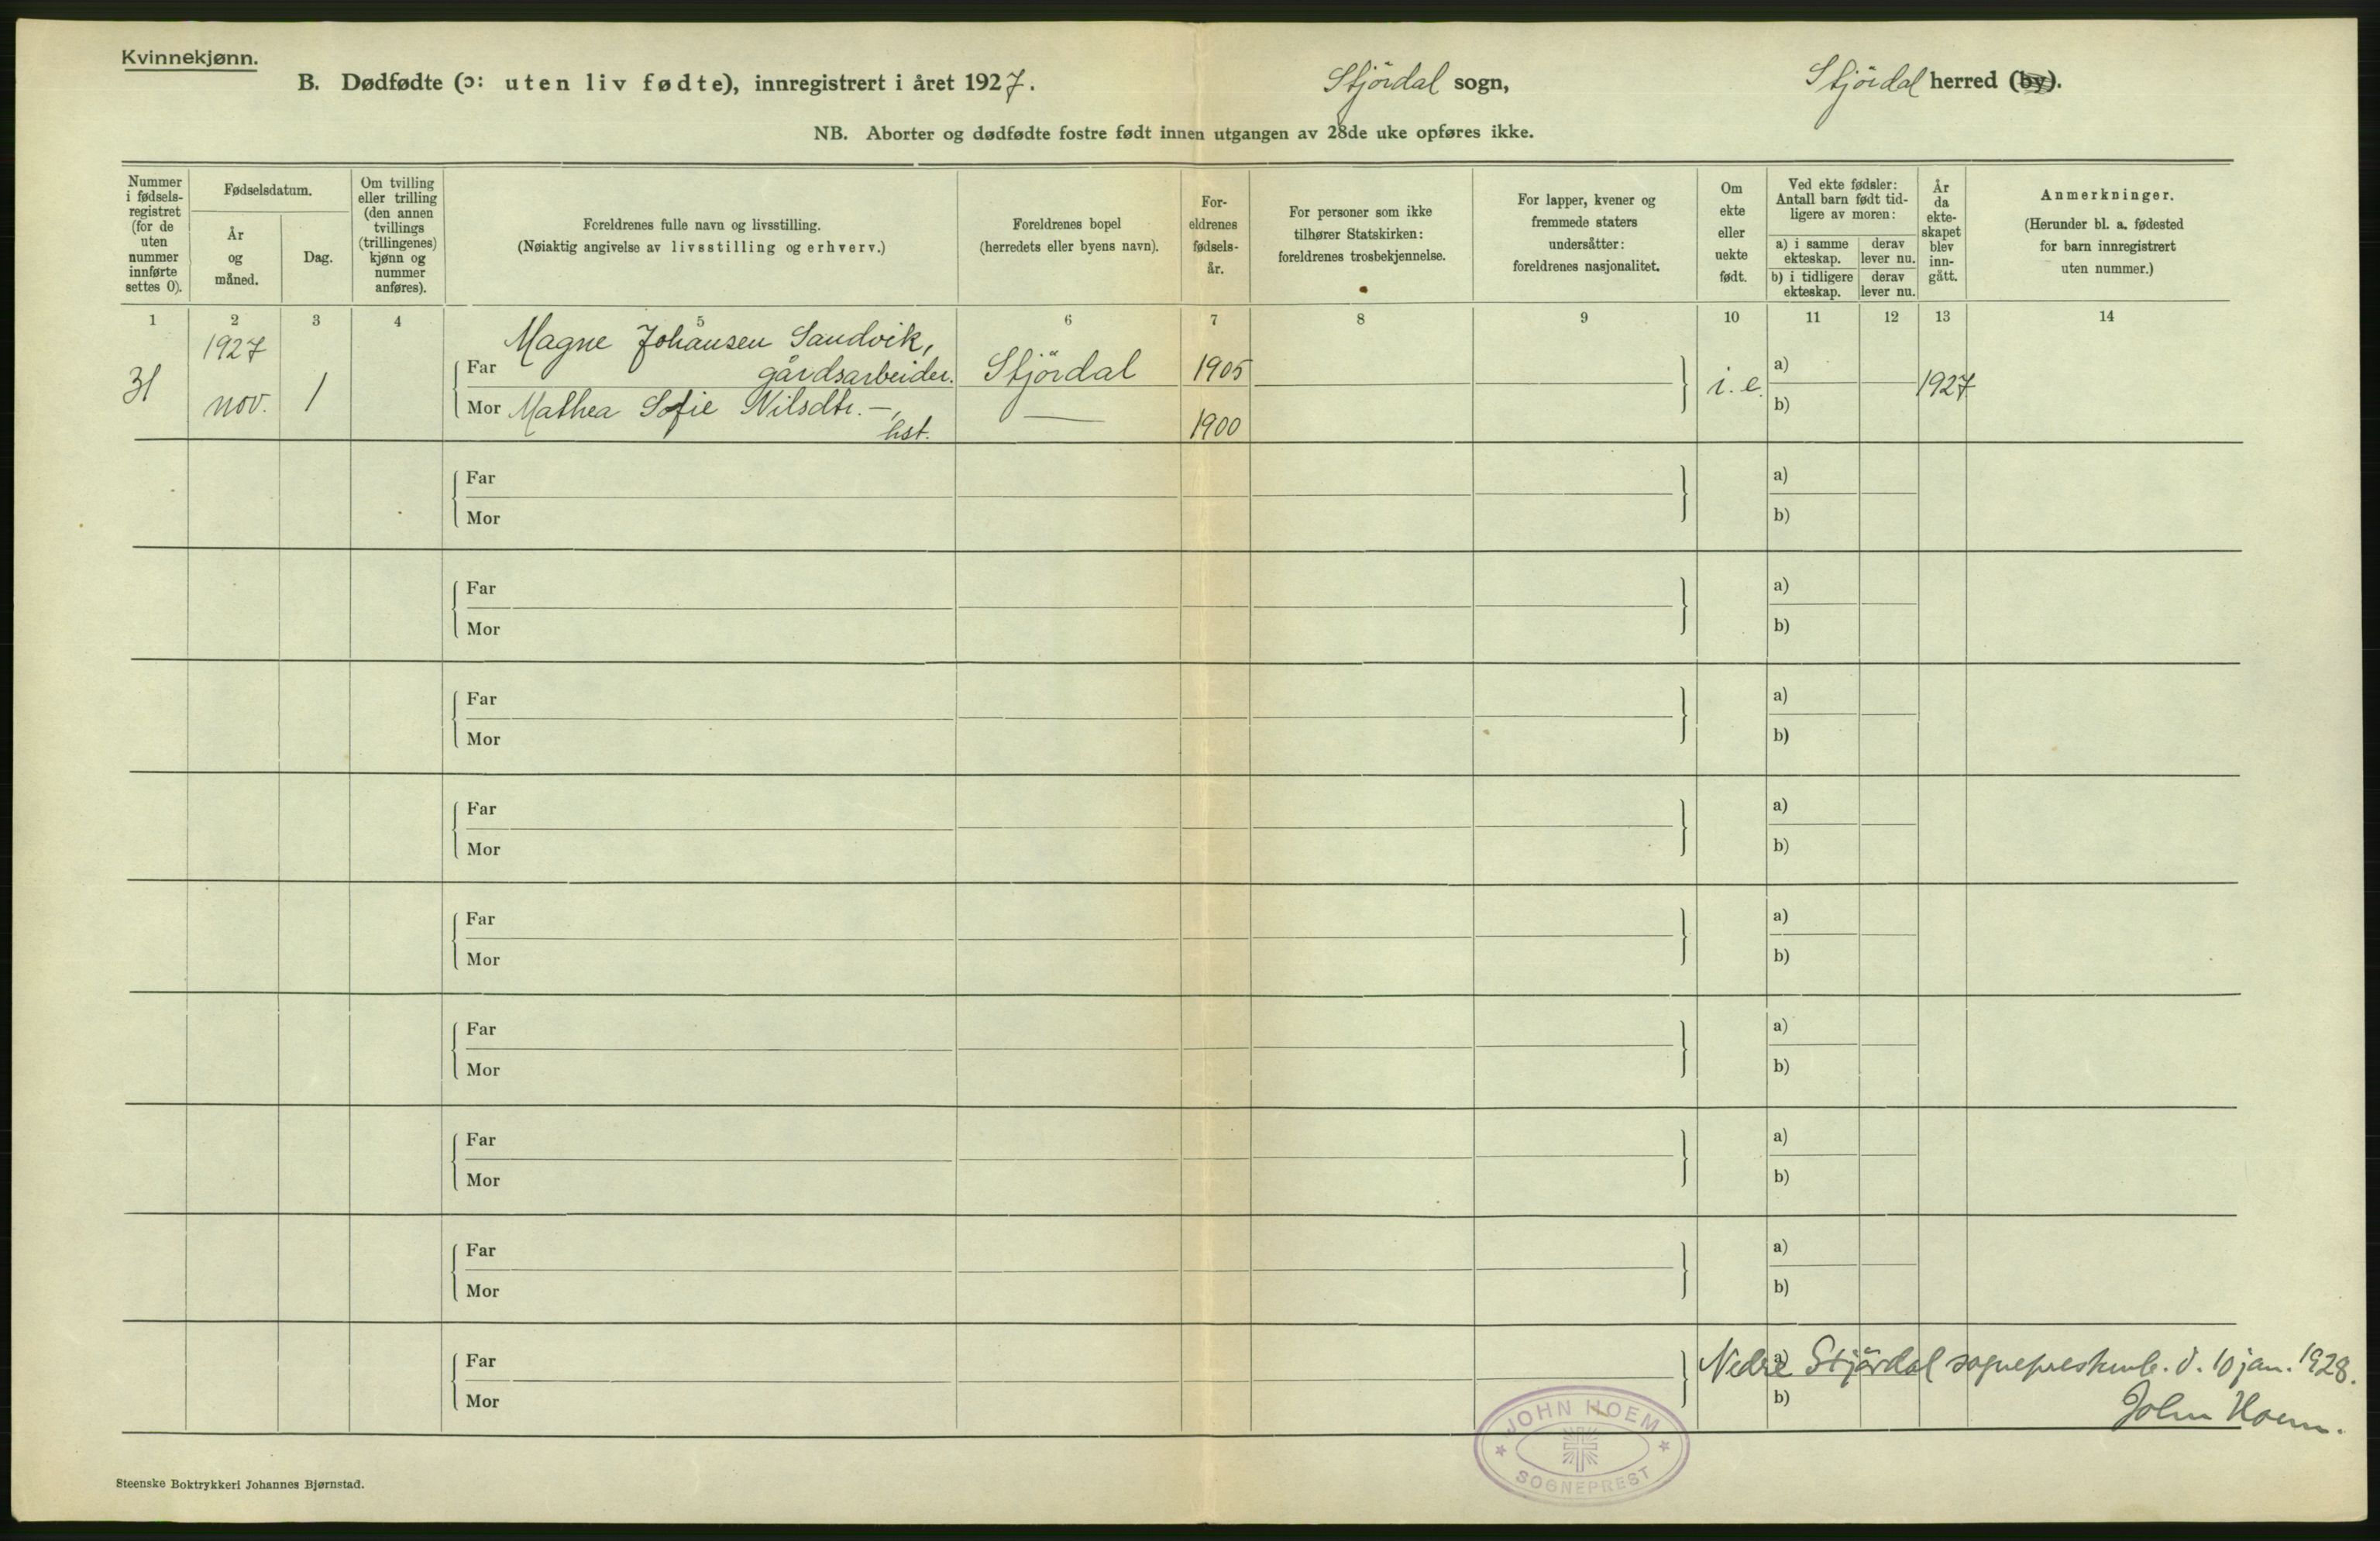 Kvinnekjønn.
B. Dødfødte (ɔ: uten liv fødte), innregistrert i året 1927. Stjördal sogn, Stjördal herred (by).
NB. Aborter og dødfødte fostre født innen utgangen av 28de uke opføres ikke.
Nummer
i fødsels-
registret
(for de
uten
nummer
innførte
settes 0).
Fødselsdatum.
År
og
måned.
Dag.
Om tvilling
eller trilling
(den annen
tvillings
(trillingenes)
kjønn og
nummer
anføres).
Foreldrenes fulle navn og livsstilling.
(Nøiaktig angivelse av livsstilling og erhverv.)
Foreldrenes bopel
(herredets eller byens navn).
For-
eldrenes
fødsels-
år.
For personer som ikke
tilhører Statskirken:
foreldrenes trosbekjennelse.
For lapper, kvener og
fremmede staters
undersåtter:
foreldrenes nasjonalitet.
Om
ekte
eller
uekte
født.
Ved ekte fødsler:
Antall barn født tid-
ligere av moren:
a) i samme
ekteskap.
derav
lever nu.
b) i tidligere
ekteskap.
derav
lever nu.
År
da
ekte-
skapet
blev
inn-
gått.
Anmerkninger.
(Herunder bl. a. fødested
for barn innregistrert
uten nummer.)
1 2 3 4 5 6 7 8 9 10 11 12 13 14
31
1927
nov.
1
Magne Johansen Sandvik,
Far gårdsarbeider. Stjördal 1905
Mor Mathea Sofie Nilsdtr. —, — 
hst. 1900
i. e.
a)
b)
1927
Far a)
Mor b)
Far a)
Mor b)
Far a)
Mor b)
Far a)
Mor b)
Far a)
Mor b)
Far a)
Mor b)
Far a)
Mor b)
Far a)
Mor b)
Far a)
Mor b)
Nedre Stjørdal sogneprestemb. d. 10 jan. 1928.
John Hoem.
JOHN HOEM
SOGNEPREST
Steenske Boktrykkeri Johannes Bjørnstad.